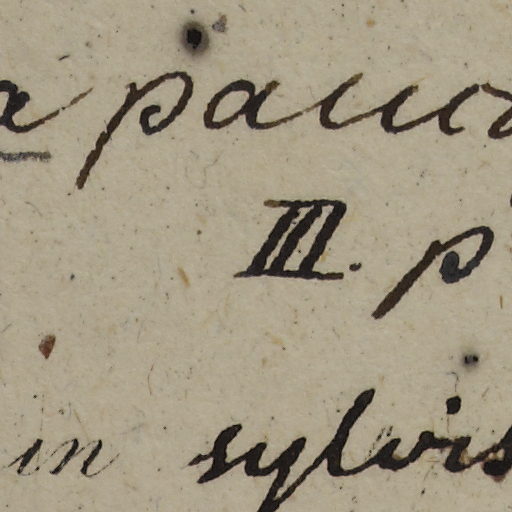 a pauc
III. p
in sylvis